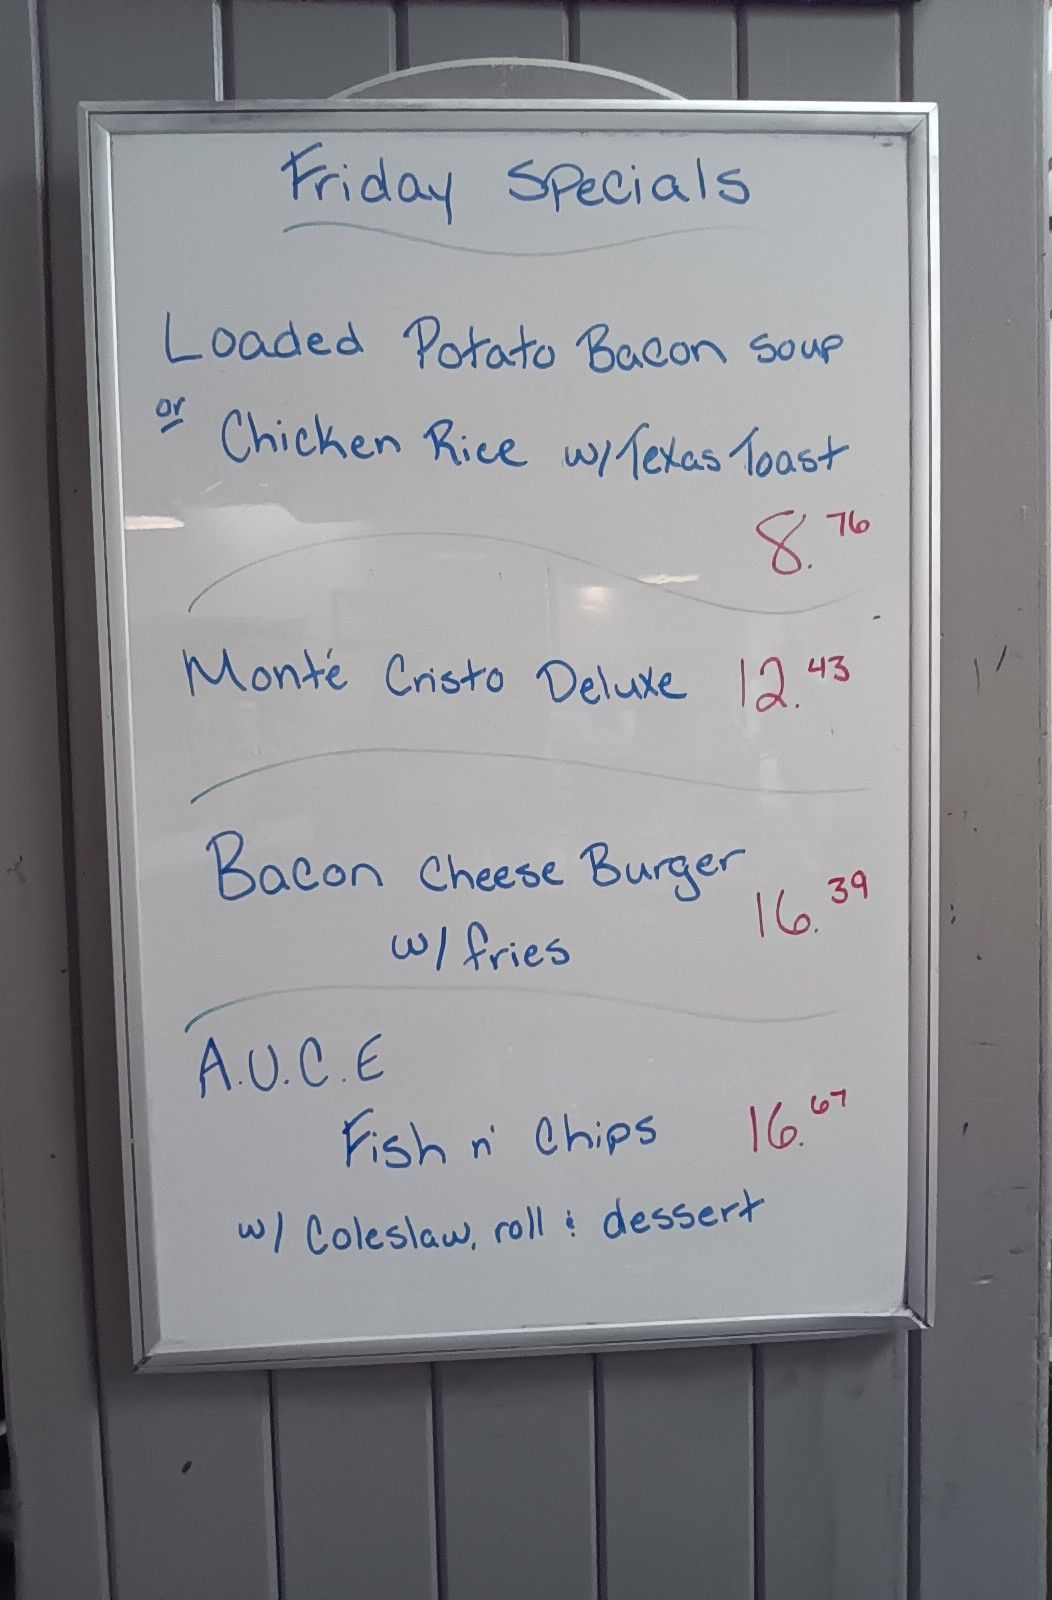 Friday Specials
Loaded Potato Bacon Soup
or Chicken Rice w/Texas Toast
8.76
Monté Cristo Deluxe 12.43
Bacon Cheese Burger
16.39
w/ fries
A.U.C.E
Fish n' Chips 16.67
w/ Coleslaw, roll & dessert